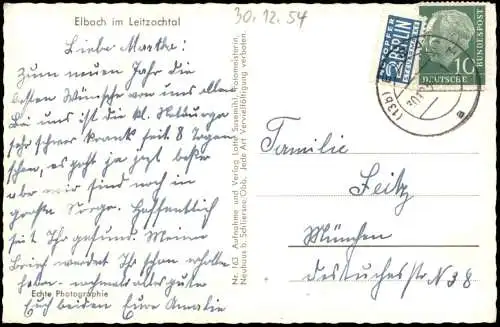 30.12.54
Elbach im Leitzachtal
Liebe Martha!
Zum neuen Jahr die
besten Wünsche von uns allen
Bei uns ist die kl. Walburga
sehr schwer krank seit 8 Tagen
schon, es geht ja jetzt besser
aber wir sind noch in
großer Sorge. Hoffentlich
seit Ihr gesund. Meinen
Brief werdet Ihr schon erhalten
haben - nochmals alles gute
Euch beiden Eure Amalie
Echte Photographie
Nr. 163 Aufnahme und Verlag Lotte Susemihl, Fotomeisterin,
Neuhaus b. Schliersee/Obb. Jede Art Vervielfältigung verboten.
NOTOPFER
2 BERLIN
STEUERMARKE
DEUTSCHE
BUNDESPOST
10
(13b)
a
Familie
Feitz
München
Nº 38